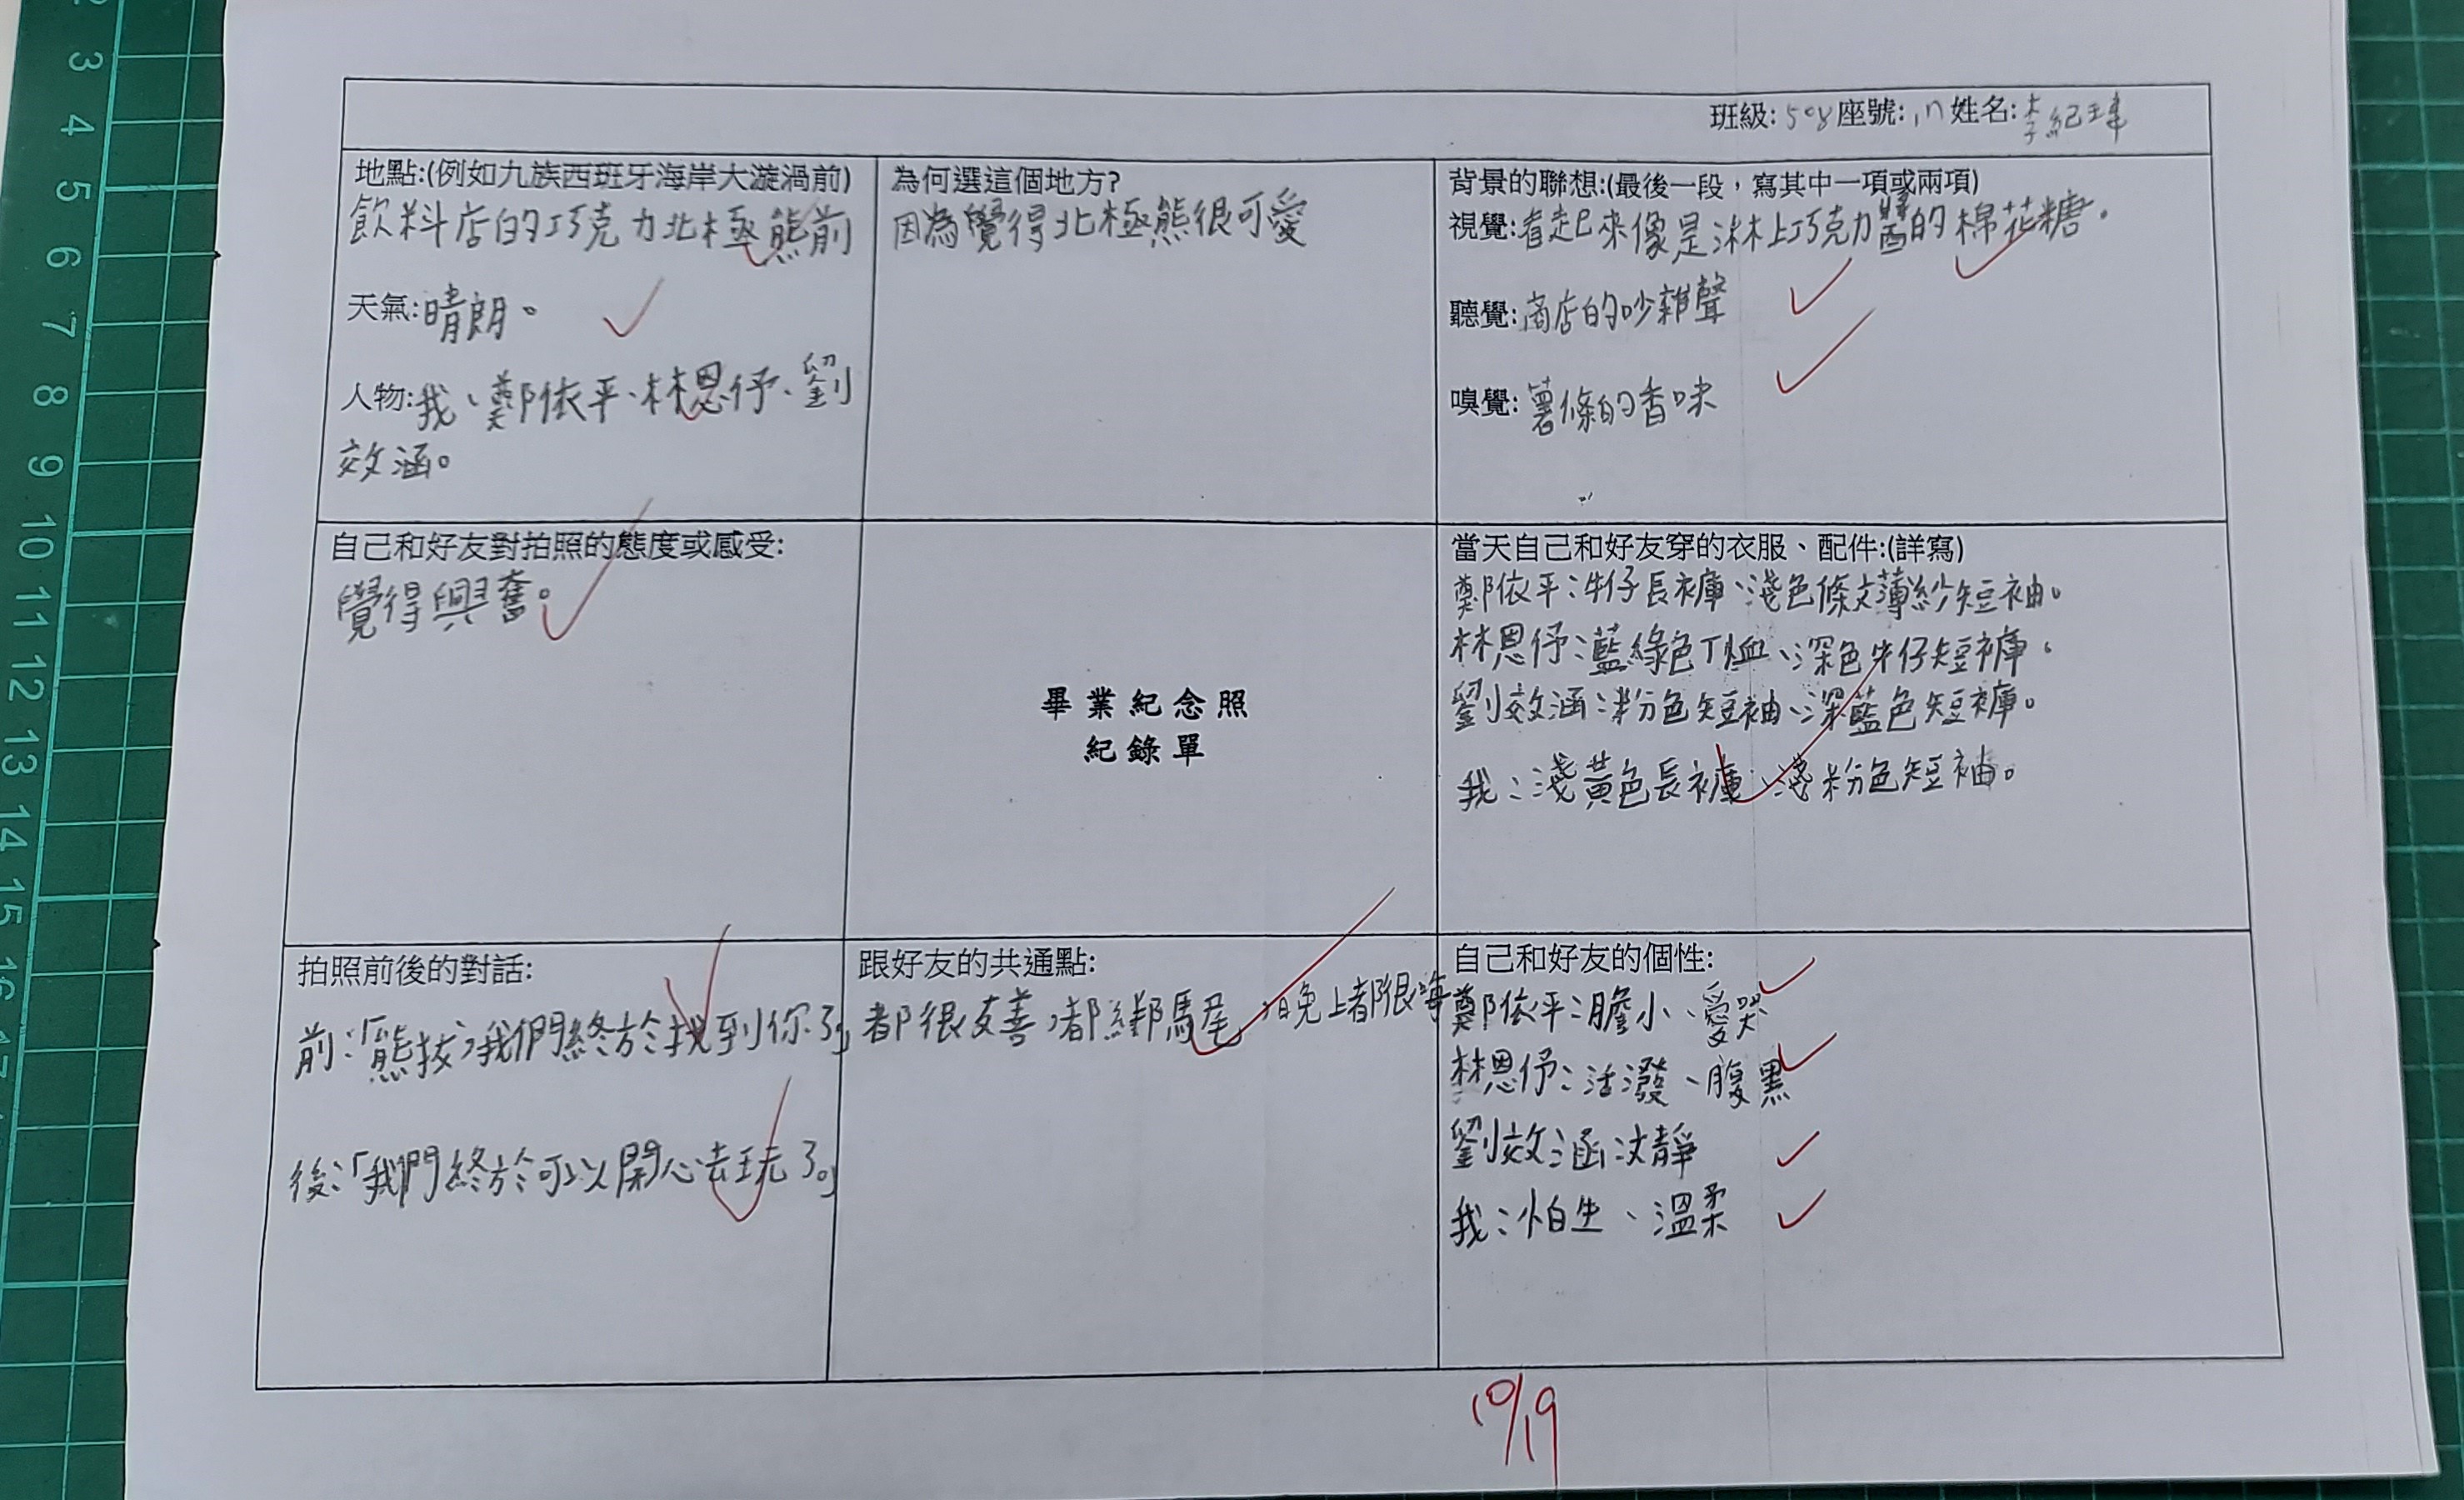 班級:508座號:17姓名:李紀瑋
地點:(例如九族西班牙海岸大漩渦前)
飲料店的巧克力北極熊前
天氣:晴朗。
人物:我、鄭依平、林恩伃、劉
效涵。
為何選這個地方?
因為覺得北極熊很可愛
背景的聯想:(最後一段，寫其中一項或兩項)
視覺:看起來像是淋上巧克力醬的棉花糖。
聽覺:商店的吵雜聲
嗅覺:薯條的香味
自己和好友對拍照的態度或感受:
覺得興奮。
畢業紀念照
紀錄單
當天自己和好友穿的衣服、配件:(詳寫)
鄭依平:牛仔長褲、淺色條文薄紗短袖。
林恩伃:藍綠色T恤、深色牛仔短褲。
劉效涵:粉色短袖、深藍色短褲。
我:淺黃色長褲、淺粉色短袖。
拍照前後的對話:
前:「熊拔,我們終於找到你了」
後:「我們終於可以開心去玩了。」
跟好友的共通點:
都很友善,都綁馬尾,晚上都很嗨
自己和好友的個性:
鄭依平:膽小、愛哭
林恩伃:活潑、腹黑
劉效涵:文靜
我:怕生、溫柔
10/19
3
4
5
6
7
8
9
10
11
12
13
14
15
16
17